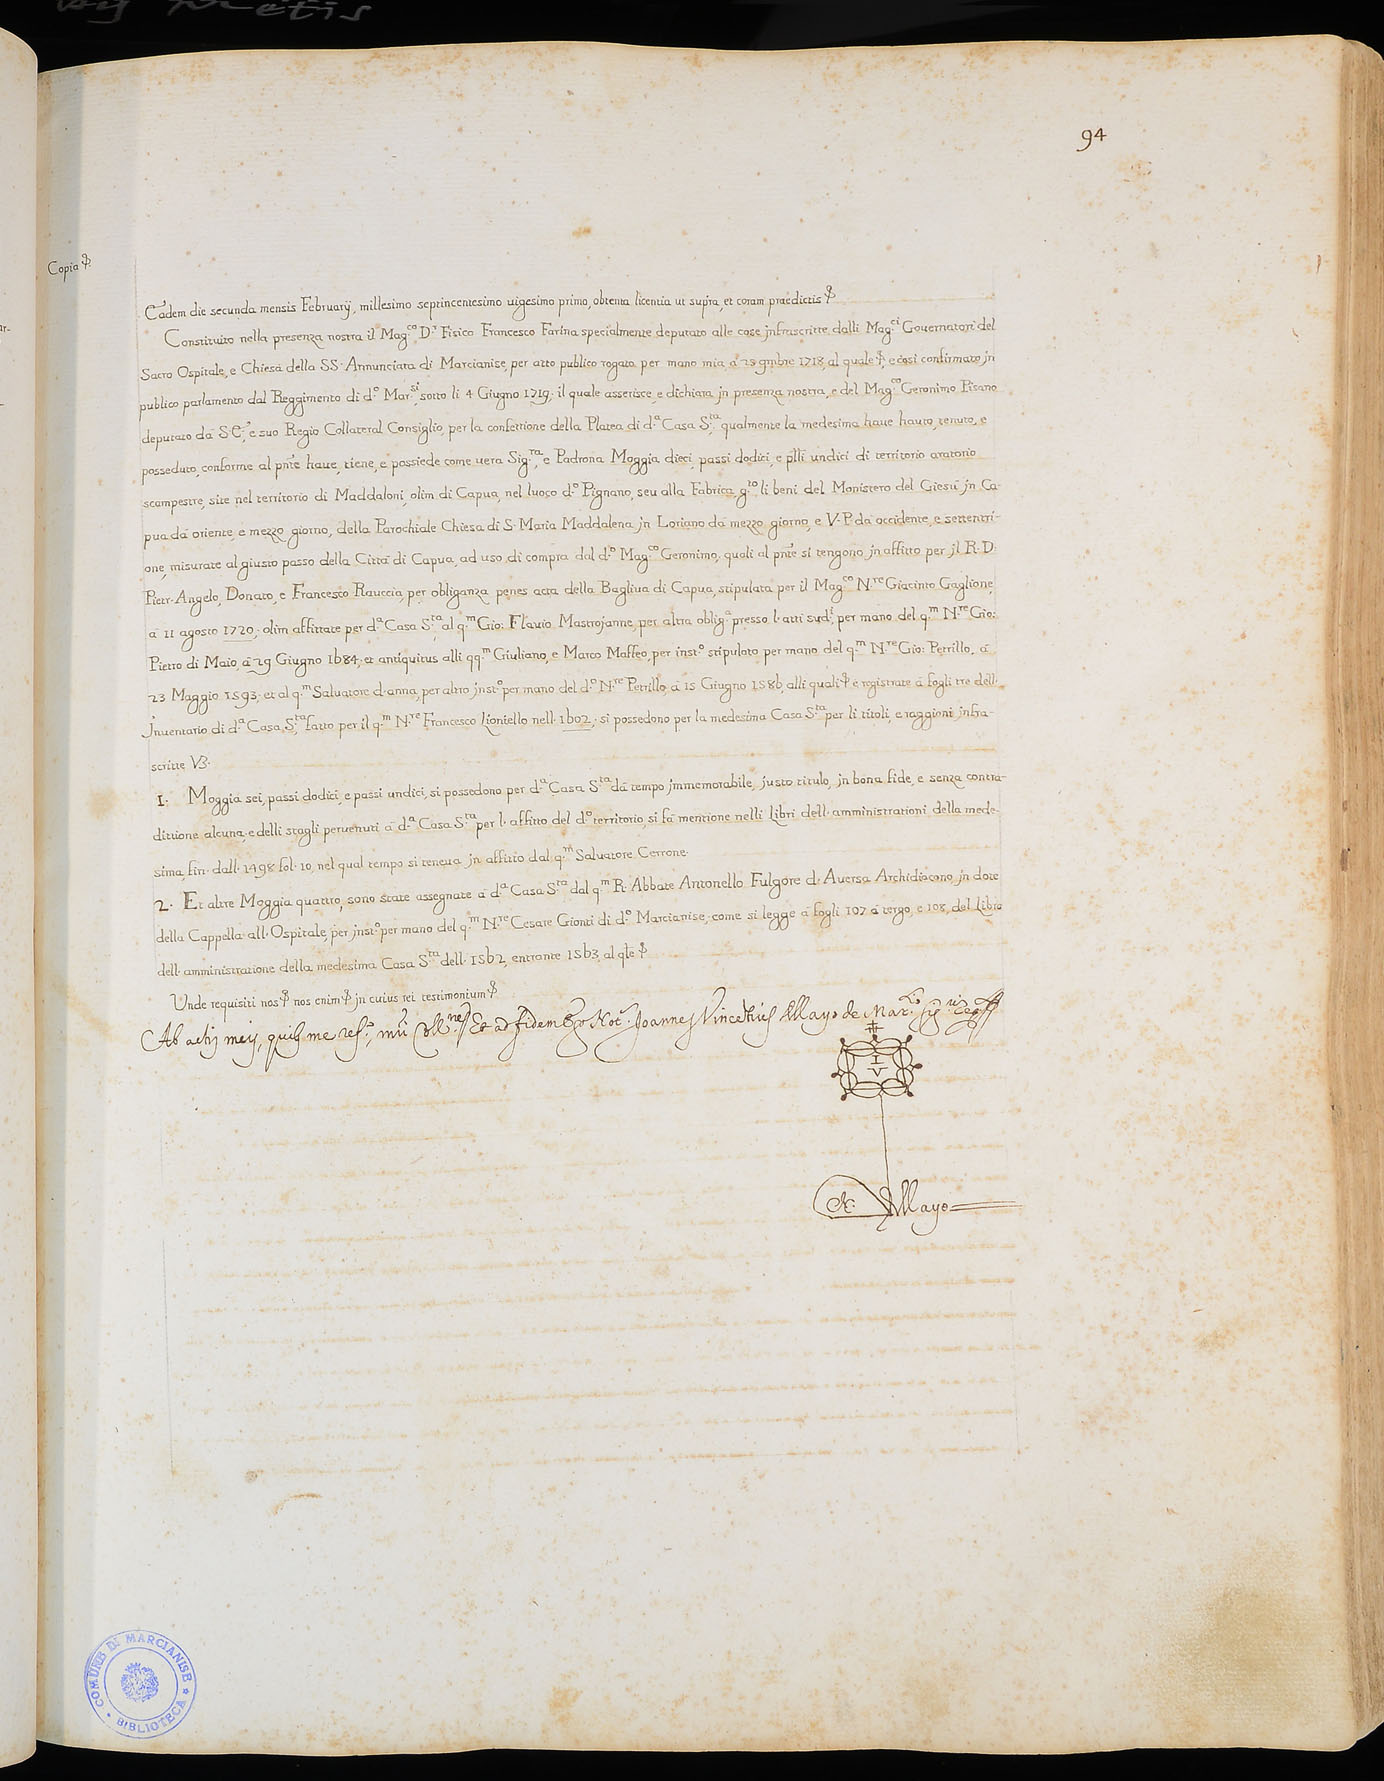 94
Copia
Eadem die secunda mensis Februarij, millesimo septincentesimo uigesimo primo, obtenta licentia ut supra, et coram praedictis
Constituito nella presenza nostra il Mag.co D.r Fisico Francesco Farina specialmente deputato alle cose jnfrascritte dalli Mag.ci Gouernatori del
Sacro Ospitale, e Chiesa della SS. Annunciata di Marcianise, per atto publico rogato per mano mia à 25 9mbre 1718, al quale, e così confirmato jn
publico parlamento dal Reggimento di d.o Mar.si sotto li 4 Giugno 1719. il quale asserisce, e dichiara jn presenza nostra, e del Mag.co Geronimo Pisano
deputato da S.E., e suo Regio Collateral Consiglio, per la confettione della Platea di d.a Casa S.ta, qualmente la medesima haue hauto, tenuto, e
posseduto, conforme al pnte haue, tiene, e possiede come uera Sig.ra, e Padrona Moggia dieci, passi dodici, e plli undici di territorio aratorio
scampestre, site nel territorio di Maddaloni, olim di Capua, nel luoco d.o Pignano, seu alla Fabrica, g.to li beni del Monistero del Giesù jn Ca-
pua da oriente, e mezzo giorno, della Parochiale Chiesa di S. Maria Maddalena jn Loriano da mezzo giorno, e V. P. da occidente, e settentri-
one, misurate al giusto passo della Città di Capua, ad uso di compra dal d.o Mag.co Geronimo, quali al pnte si tengono jn affitto per jl R. D.
Pietr. Angelo, Donato, e Francesco Rauccia, per obliganza penes acta della Bagliua di Capua, stipulata per il Mag.co N.re Giacinto Gaglione,
à 11 agosto 1720. olim affittate per d.a Casa S.ta al q.m Gio: Flauio Mastrojanne, per altra oblig.a presso l. atti sud.i, per mano del q.m N.re Gio:
Pietro di Maio à 29 Giugno 1684, et antiquitus alli qq.m Giuliano, e Marco Maffeo, per inst.o stipulato per mano del q.m N.re Gio: Petrillo, à
23 Maggio 1593, et al q.m Saluatore d.anna, per altro jnst.o per mano del d.o N.re Petrillo à 15 Giugno 1586, alli quali e registrate à fogli tre dell.
Jnuentario di d.a Casa S.ta fatto per il q.m N.re Francesco Lioniello nell. 1602. si possedono per la medesima Casa S.ta per li titoli, e raggioni jnfra-
scritte V3.
1. Moggia sei, passi dodici, e passi undici, si possedono per d.a Casa S.ta da tempo jmmemorabile, justo titulo, jn bona fide, e senza contra-
dittione alcuna, e delli stagli peruenuti à d.a Casa S.ta per l. affitto del d.o territorio, si fà mentione nelli Libri dell. amministrationi della mede-
sima, fin. dall. 1498 fol. 10, nel qual tempo si teneua jn affitto dal q.m Saluatore Cerrone.
2. Et altre Moggia quattro, sono state assegnate à d.a Casa S.ta dal q.m R. Abbate Antonello Fulgore d. Auersa Archidiacono jn dote
della Cappella all. Ospitale, per jnst.o per mano del q.m N.re Cesare Gionti di d.o Marcianise, come si legge à fogli 107 à tergo, e 108, del Libro
dell. amministratione della medesima Casa S.ta dell. 1562, entrante 1563, al qle
Unde requisiti nos nos enim jn cuius rei testimonium
Ab actis meis, quib me ref. Et ad fidem Ego Not.r Joannes Vincentius Mayo de Mar.
I V
N. Mayo
COMUNE DI MARCIANISE
BIBLIOTECA